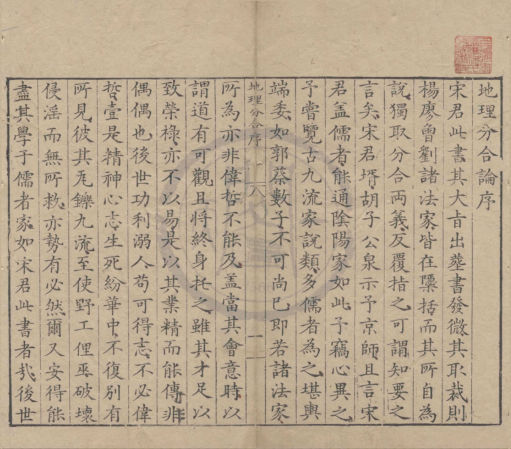 地理分合論序
宋君此書其大旨出葬書發微其取裁則
楊廖曾劉諸法家皆在檃括而其所自為
說獨取分合兩義反覆指之可謂知要之
言矣宋君壻胡子公泉示予京師且言宋
君盖儒者能通陰陽家如此予竊心異之
予嘗覽古九流家說類多儒者為之堪輿
端委如郭蔡數子不可尚已即若諸法家
地理分合序
一
所為亦非偉哲不能及盖當其會意時以
謂道有可觀且將終身托之雖其才足以
致榮祿亦不以易是以其業精而能傳非
偶偶也後世功利溺人苟可得志不必偉
哲壹是精神心志生死紛華中不復別有
所見彼其凢鑠九流至使野工俚巫破壞
侵淫而無所救亦勢有必然爾又安得能
盡其學于儒者家如宋君此書者哉後世